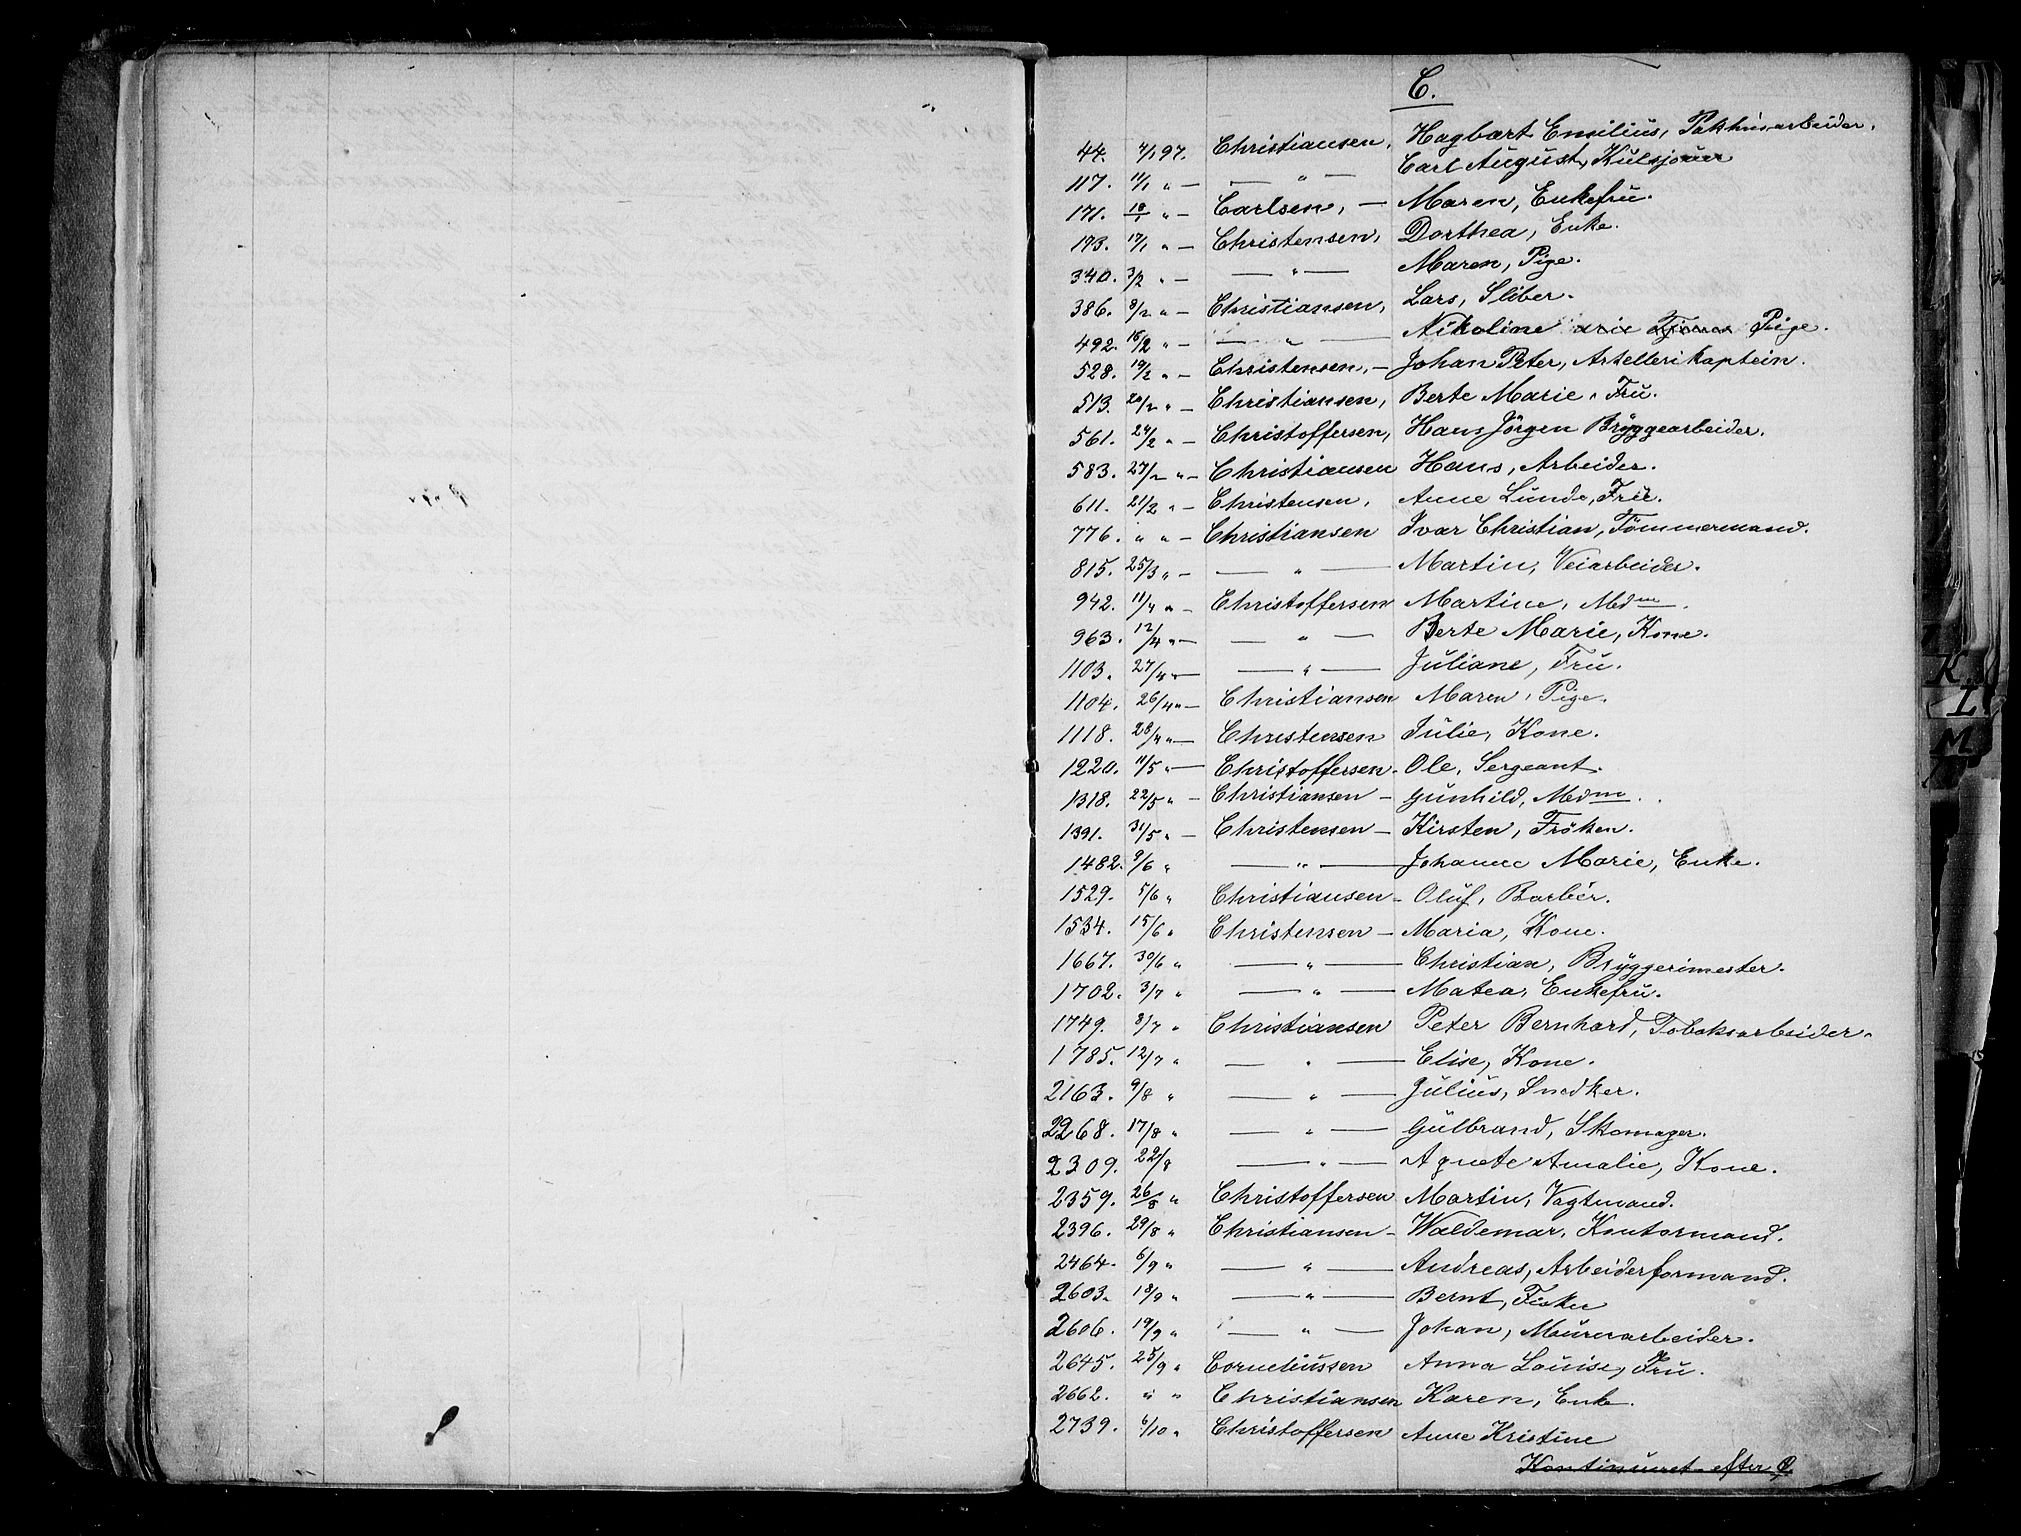 C.
44. 4/1 97. Christiansen, Hagbart Emilius, Pakhusarbeider.
117. 11/1 " — — " — Carl August, Kulsjouer
171. 18/1 " — Carlsen, — Maren, Enkefru.
173. 17/1 " — Christensen, Dorthea, Enke.
340. 3/2 " — — " — Maren, Pige.
386. 8/2 " — Christiansen, Lars, Sliber.
492. 15/2 " — — " — Nikoline Pige.
528. 19/2 " — Christensen, — Johan Peter, Artellerikaptein.
513. 20/2 " — Christiansen, Berte Marie, Fru.
561. 24/2 " — Christoffersen, Hans Jörgen Bryggearbeider.
583. 27/2 " — Christiansen Hans, Arbeider.
611. 21/2 " — Christensen, Anne Lunde, Frue.
776. " " — Christiansen Ivar Christian, Tömmermand.
815. 25/3 " — — " — Martin, Veiarbeider.
942. 11/4 " — Christoffersen Martine, Medm.
963. 12/4 " — — " — Berte Marie, Kone.
1103. 27/4 " — — " — Juliane, Fru.
1104. 26/4 " — Christiansen Maren, Pige.
1118. 28/4 " — Christensen Julie, Kone.
1220. 11/5 " — Christoffersen. Ole, Sergeant.
1318. 22/5 " — Christiansen — Gunhild, Medm.
1391. 31/5 " — Christensen — Kirsten, Fröken.
1482. 9/6 " — " — Johanne Marie, Enke.
1529. 5/6 " Christiansen — Oluf, Barbér.
1534. 15/6 " Christensen — Maria, Kone.
1667. 30/6 " — " — Christian, Bryggerimester.
1702. 3/7 " — " — Matea, Enkefru.
1749. 8/7 " Christiansen Peter Bernhard, Tobaksarbeider.
1785. 12/7 " — " — Elise, Kone.
2163. 9/8 " — " — Julius, Snedker.
2268. 17/8 " — " — Gulbrand, Skomager.
2309. 22/8 — " — Agnete Amalie, Kone.
2359. 26/8 " Christoffersen Martin, Vagtmand.
2396. 29/8 " Christiansen — Waldemar, Kontormand.
2464. 6/9 " — " — Andreas, Arbeiderformand.
2603. 18/9 " — " — Bernt, Fisker
2606. 19/9 " — " — Johan, Murerarbeider.
2645. 25/9 " Corneliussen Anna Louise, Fru.
2662. " " Christiansen Karen, Enke.
2739. 6/10 " Christoffersen Anne Kristine
Kontinueret efter Q.
K
L
M